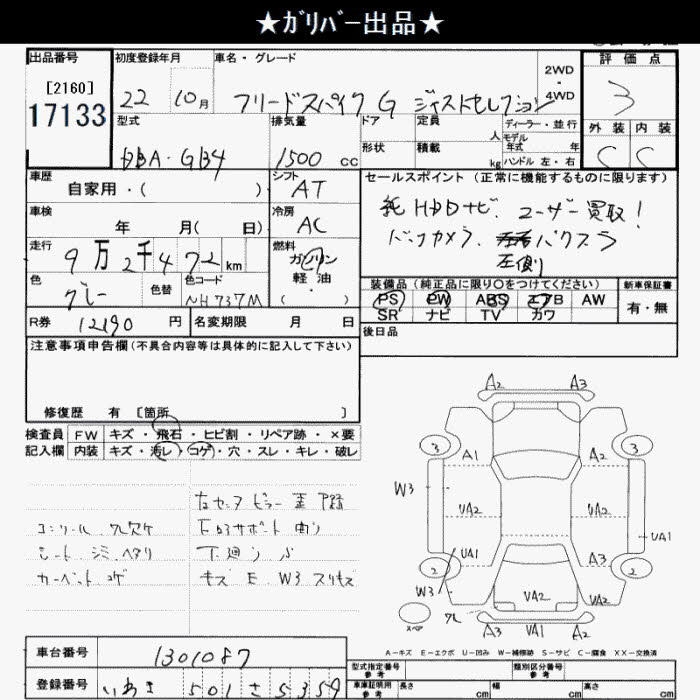 ★ｶﾞﾘﾊﾞｰ出品★
出品番号 初度登録年月 車名・グレード 2WD・4WD 評価点
[2160]
17133
22 10月 フリードスパイク G ジャストセレクション 3
型式 排気量 ドア 定員 人 ディーラー・並行 外装 内装
モデル年式 年
DBA・GB4 1500 cc 形状 積載 kg ハンドル 左・右 C C
車歴 シフト セールスポイント (正常に機能するものに限ります)
自家用・( ) AT
純HDDナビ、ユーザー買取!
車検 冷房
年 月( 日) AC
バックカメラ、 パワスラ
左側
走行 燃料
9万2千472km ガソリン
軽油
・
( )
色 色替 色コード
グレー NH737M
装備品 (純正品に限り○をつけてください) 新車保証書
PS PW ABS エアB AW 有・無
SR ナビ TV カワ
R券 12190 円 名変期限 月 日
後日品
注意事項申告欄(不具合内容等は具体的に記入して下さい)
修復歴 有 [箇所 ]
検査員 FW キズ・飛石・ヒビ割・リペア跡・×要
記入欄 内装 キズ・汚レ・コゲ・穴・スレ・キレ・破レ
コンソール クレ欠ケ
シート シミ ヘタリ
カーペット コゲ
右センターピラー
下回りサポート 曲リ
下廻り
キズ E W3 スリキズ
A2 A3
3 3
A1 A2
W3 VA2 VA2
VA1
VA1 A3
2 2
W3 VA2 VA2
クレ
スペア A3 VA1
A-キズ E-エクボ U-凹み W-補修跡 S-サビ C-腐食 XX-交換済
車台番号 1301087
登録番号 いわき 501 さ 5359
型式指定番号 参考 類別区分番号 参考
車車証明用 参考 長さ cm 幅 cm 高さ cm